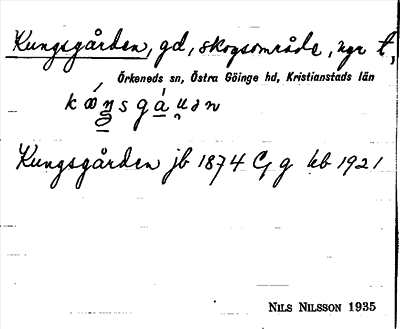 Kungsgården, gd, skogsområde, ngr t,
Örkeneds sn, Östra Göinge hd, Kristianstads län
Kungsgården jb 1874 C, g kb 1921
NILS NILSSON 1935